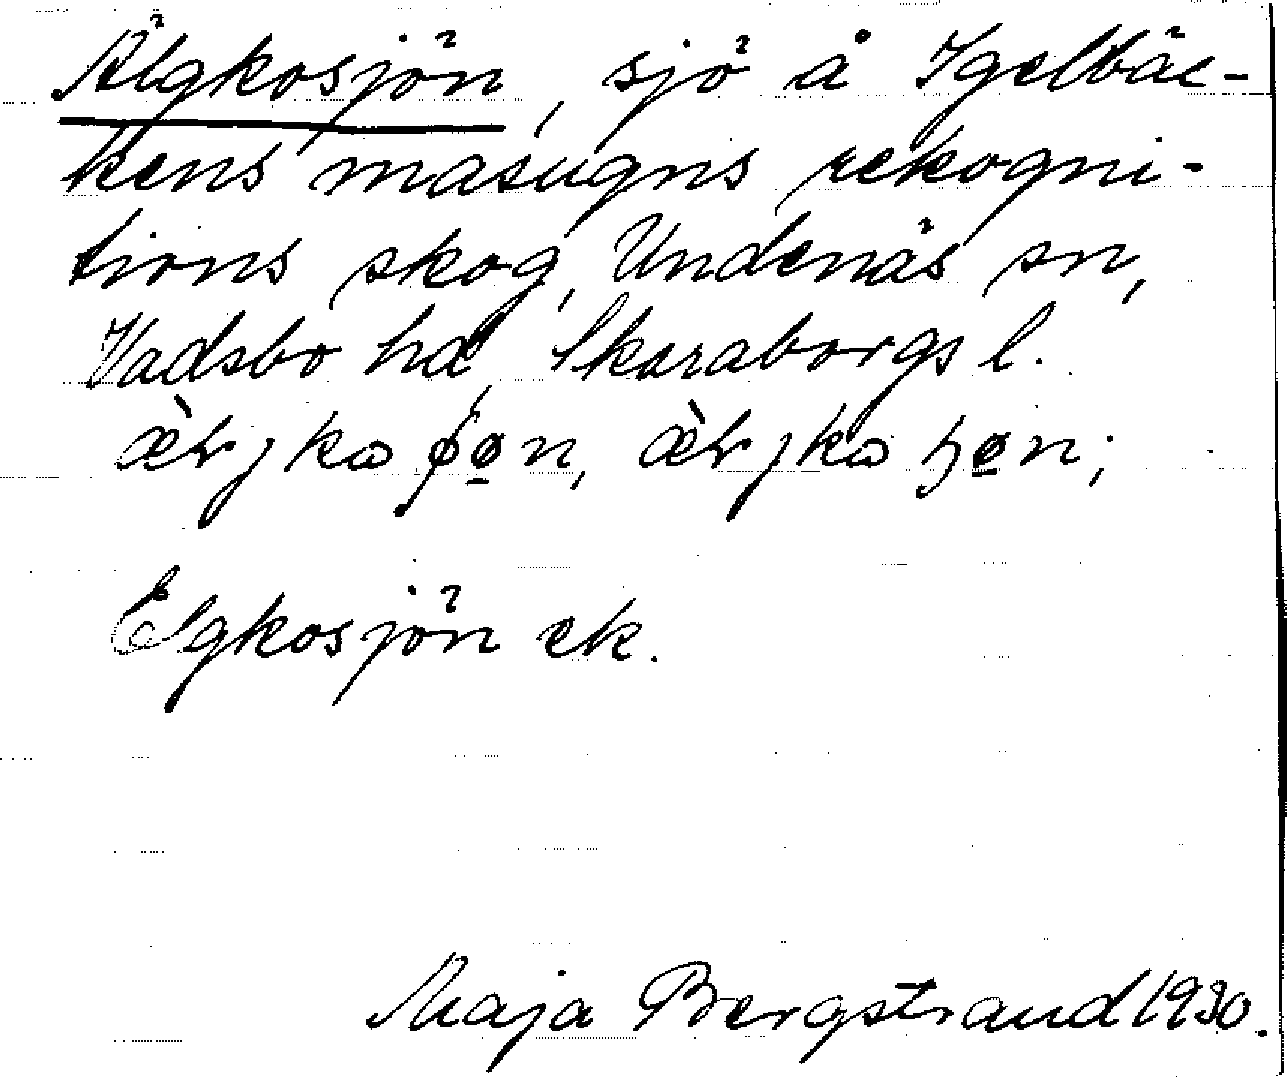 Älgkosjön, sjö å Igelbäc-
kens masugns rekogni-
tions skog, Undenäs sn,
Vadsbo hd, Skaraborgs l.
Elgkosjön ek.
Maja Bergstrand 1930.